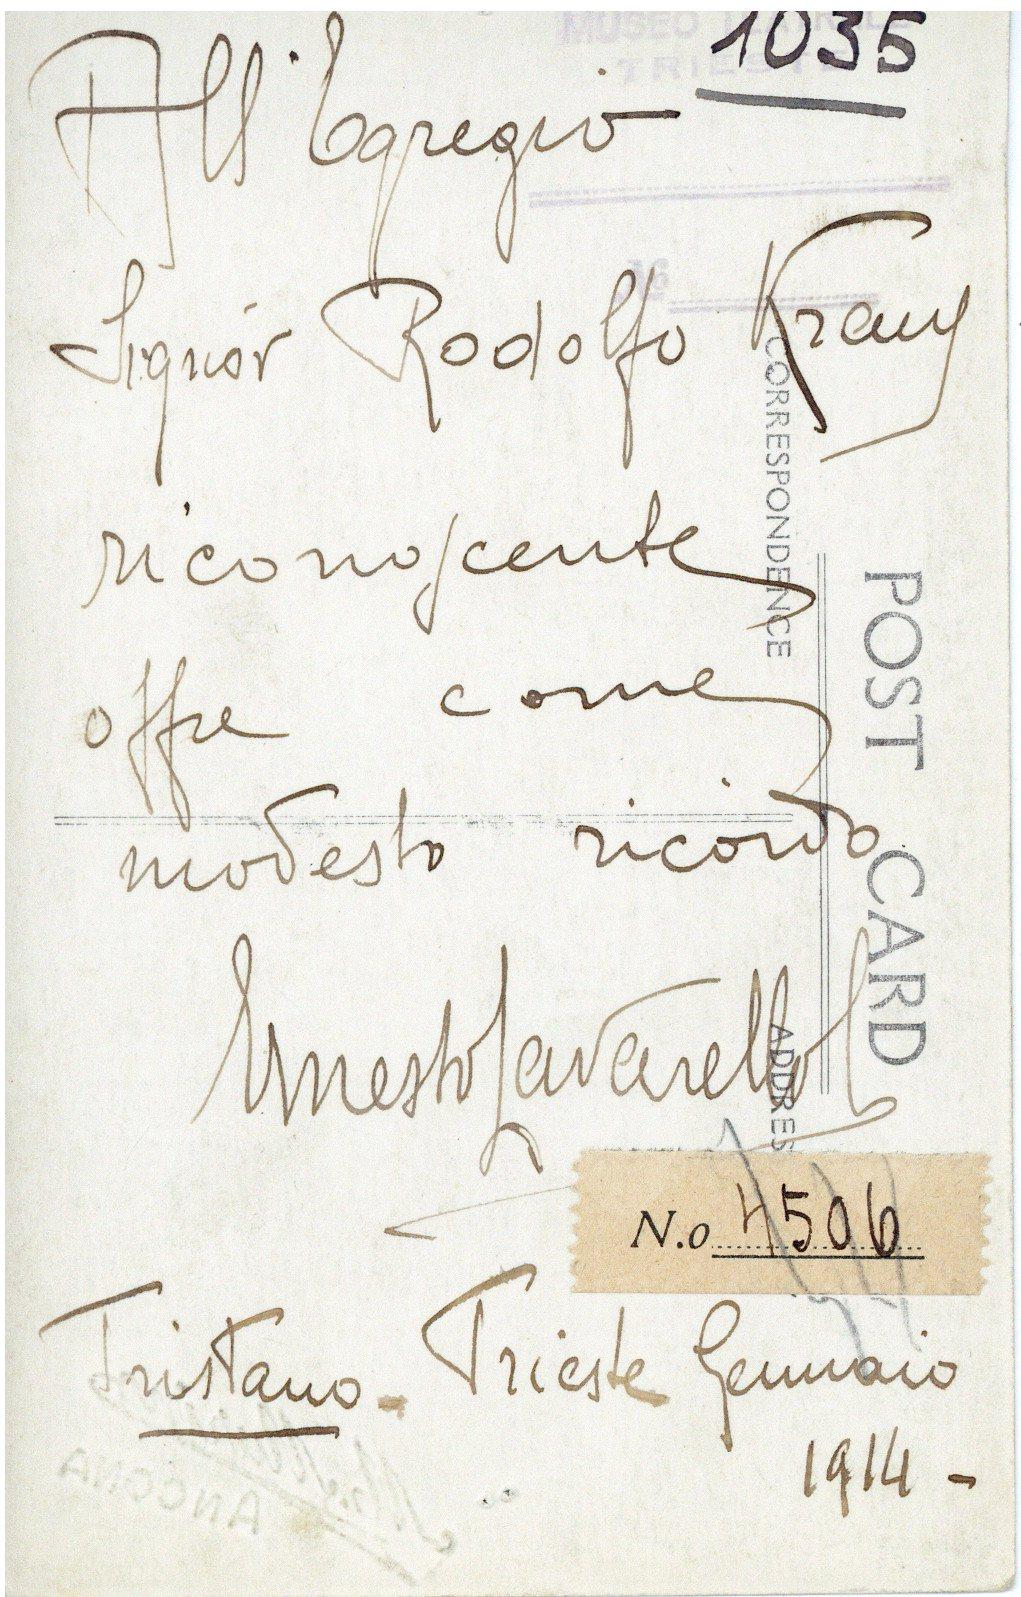 1035
MUSEO TEATRALE
TRIESTE
All'Egregio
Signor Rodolfo Kraus
riconoscente
offre come
modesto ricordo
Ernesto Lavarello
N.o 4506
Tristano - Trieste Gennaio
1914 -
CORRESPONDENCE
POST CARD
ADDRES
ANCONA